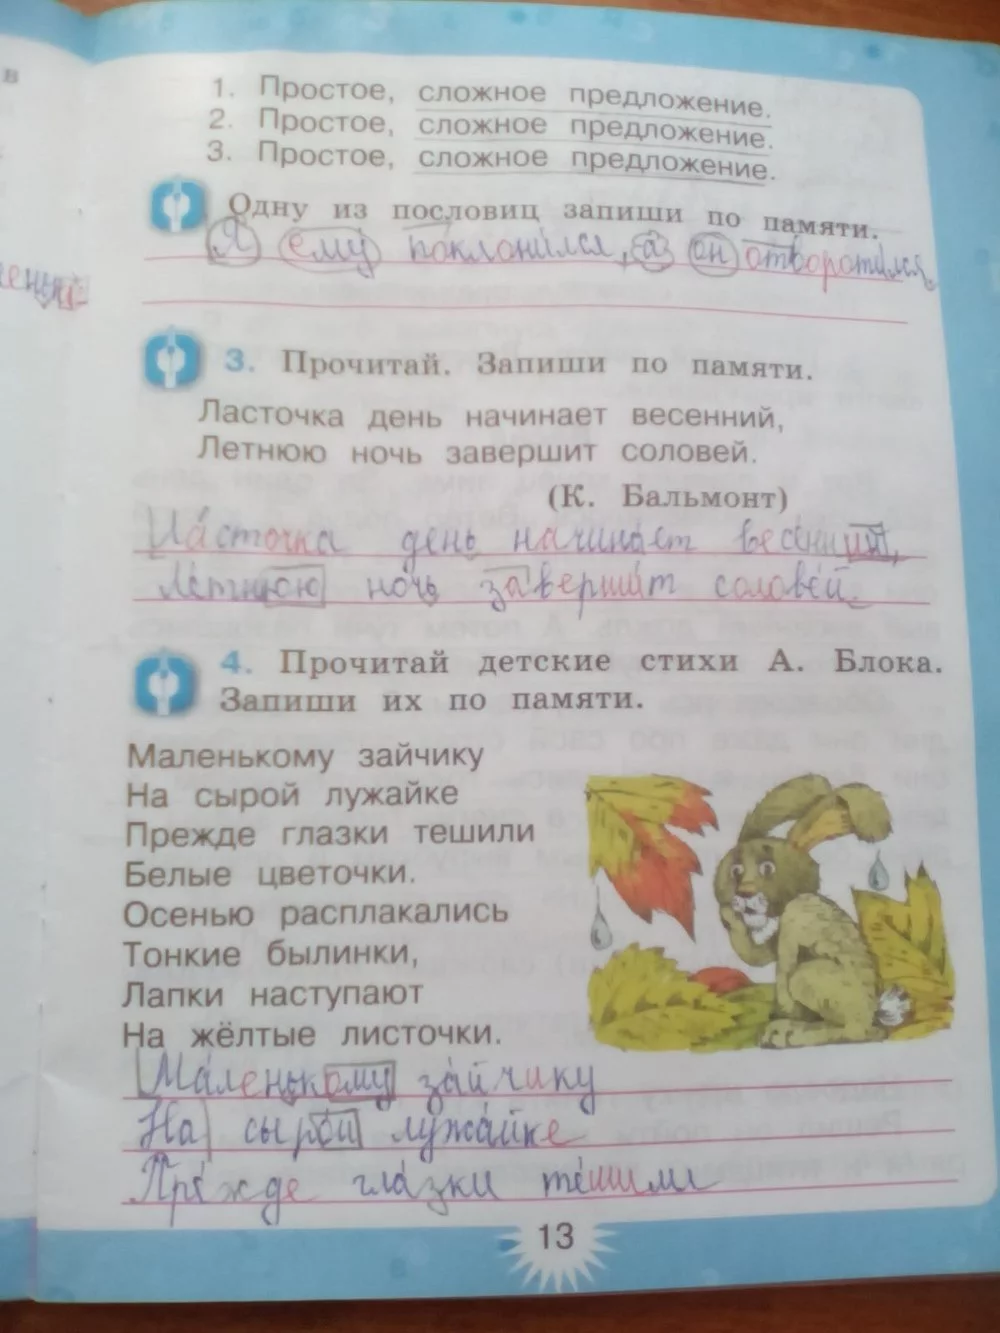 в
1. Простое, сложное предложение.
2. Простое, сложное предложение.
3. Простое, сложное предложение.
Одну из пословиц запиши по памяти.
Я ему поклонился, а он отворотился.
3. Прочитай. Запиши по памяти.
Ласточка день начинает весенний,
Летнюю ночь завершит соловей.
(К. Бальмонт)
Ласточка день начинает весенний,
Летнюю ночь завершит соловей.
4. Прочитай детские стихи А. Блока.
Запиши их по памяти.
Маленькому зайчику
На сырой лужайке
Прежде глазки тешили
Белые цветочки.
Осенью расплакались
Тонкие былинки,
Лапки наступают
На жёлтые листочки.
Маленькому зайчику
На сырой лужайке
Прежде глазки тешили
13